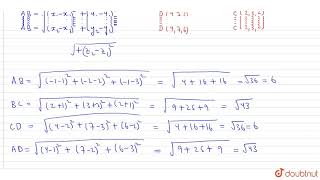 AB = √(x₂-x₁)² + (y₂-y₁)²
√+(z₂-z₁)²
AB = √(-1-1)² + (-2-2)² + (-1-3)² = √4+16+16 = √36 = 6
BC = √(2+1)² + (3+2)² + (2+1)² = √9+25+9 = √43
CD = √(4-2)² + (7-3)² + (6-2)² = √4+16+16 = √36 = 6
AD = √(4-1)² + (7-2)² + (6-3)² = √9+25+9 = √43
doubtnut